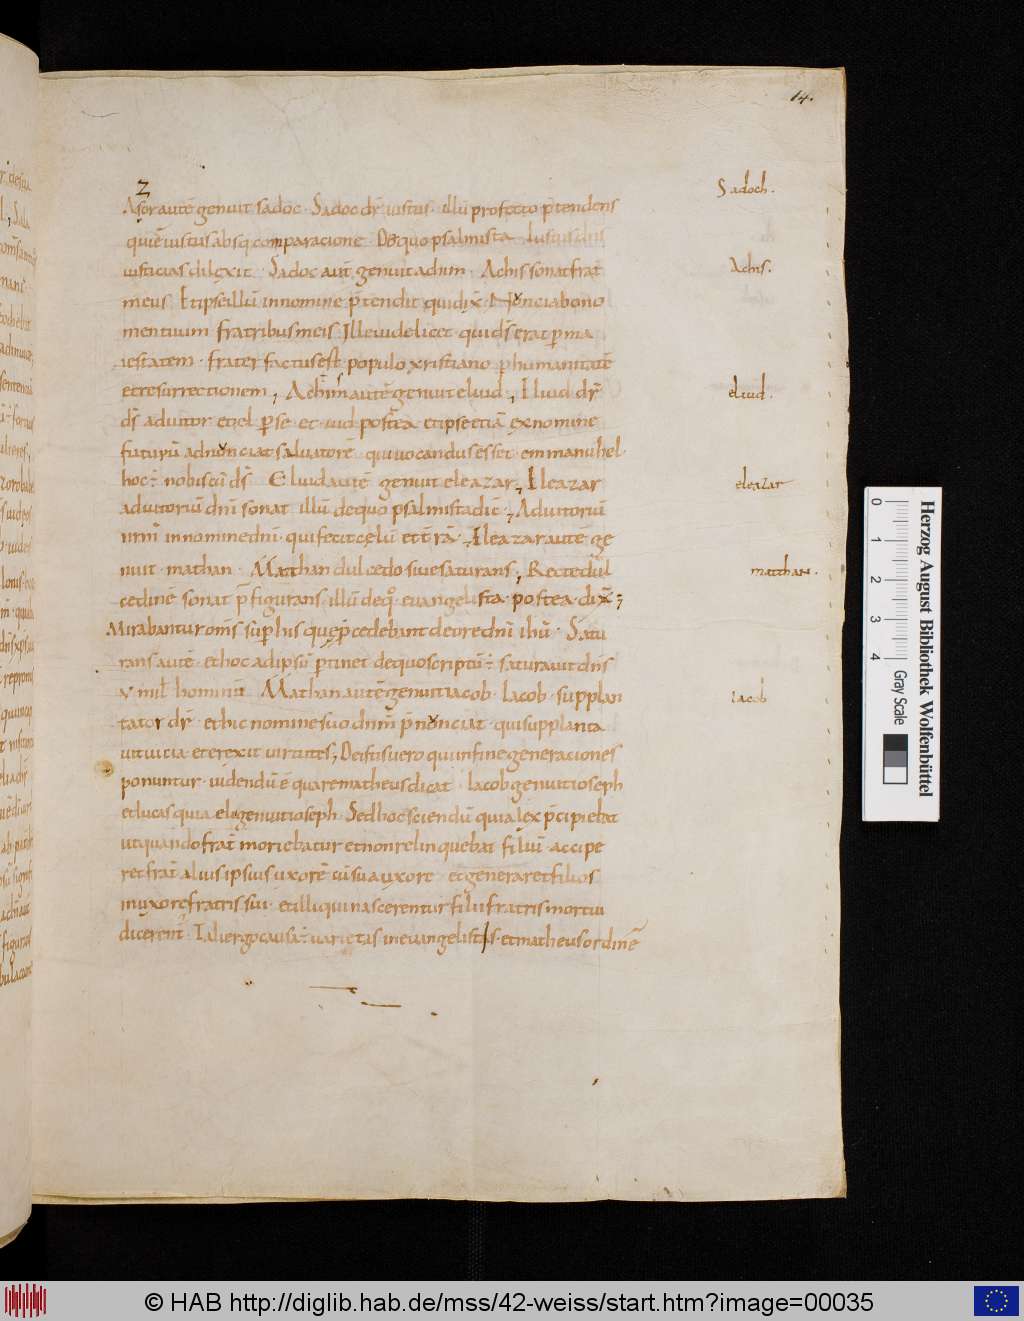 14.
z
Asor autē genuit sadoc · Sadoc dr̄ iustus · illū profecto p̄tendens
quiē iustus absq comparacione · De quo psalmista Iustus dn̄s
iusticias dilexit · Sadoc aut̄ genuit achim · Achis sonat frat̄
meus · Et ipse illū in nomine p̄tendit qui dix̄ · Nunciabo no
men tuum fratribus meis · Ille uidelicet qui ds̄ erat p ma
iestatem · frater factus est populo xristiano p humanitatē
et resurrectionem, Achim autē genuit eliud, Eliud dr̄
ds̄ adiutor et iel p se et iud postea et ipse etiā ex nomine
futurū adnunciat saluatorē qui uocandus esset emmanuhel
hoc ÷ nobiscū ds̄ Eliud autē genuit eleazar, Eleazar
adiutoriū dn̄i sonat illū de quo psalmista dic̄, Adiutoriū
urm̄ in nomine dn̄i · qui fecit celū et t̄rā, Eleazar autē ge
nuit · mathan · Matthan dulcedo siue saturans, Recte dul
cedinē sonat p̄figurans illū de q̊ euangelista · postea · dix̄;
Mirabantur om̄s sup his que p̄cedebant de ore dn̄i ihū · Satu
rans autē · et hoc ad ipsū p̄tinet de quo scriptū ÷ saturauit dn̄s
v mil hominū Mathan autē genuit iacob · Iacob · supplan
tator dr̄ · et hic nomine suo dnm̄ p̄nunciat · qui supplanta
uit uicia et erexit uirtutes, De istis uero qui in fine generaciones
ponuntur · uidendū ē quare matheus dicat · Iacob genuit ioseph
et lucas quia eli genuit ioseph · Sed hoc sciendū quia lex p̄cipiebat
ut quando frat̄ moriebatur et non relinquebat filiū · accipe
ret frat̄ alius ipsius uxorē in sua uxore et generaret filios
in uxore fratris sui · et illi qui nascerentur filii fratris mortui
dicerent̄ · Tali ergo causa ÷ uarietas in euangelistis · et matheus ordinē
Sadoch.
Achis.
eliud.
eleazar
matthan.
Iacob
0 1 2 3 4
Gray Scale
Herzog August Bibliothek Wolfenbüttel
© HAB http://diglib.hab.de/mss/42-weiss/start.htm?image=00035